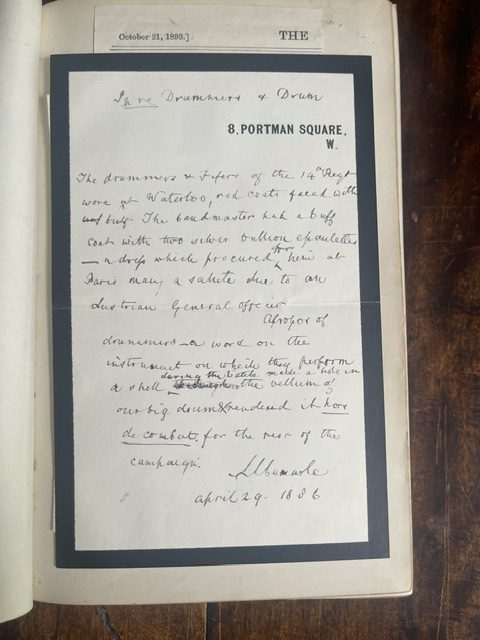 October 21, 1893.]
THE
In re Drummers & Drum
8, PORTMAN SQUARE,
W.
The drummers & Fifers of the 14th Regt
wore at Waterloo, red coats faced with
buff. The bandmaster had a buff
coat with two silver bullion epaulettes
— a dress which procured for him at
Paris many a salute due to an
Austrian General officer
Apropos of
drummers — a word on the
instrument on which they perform
during the battle made a hole in
a shell the vellum of
our big drum & rendered it hors
de combat, for the rest of the
campaign.
Albemarle
April 29. 1886